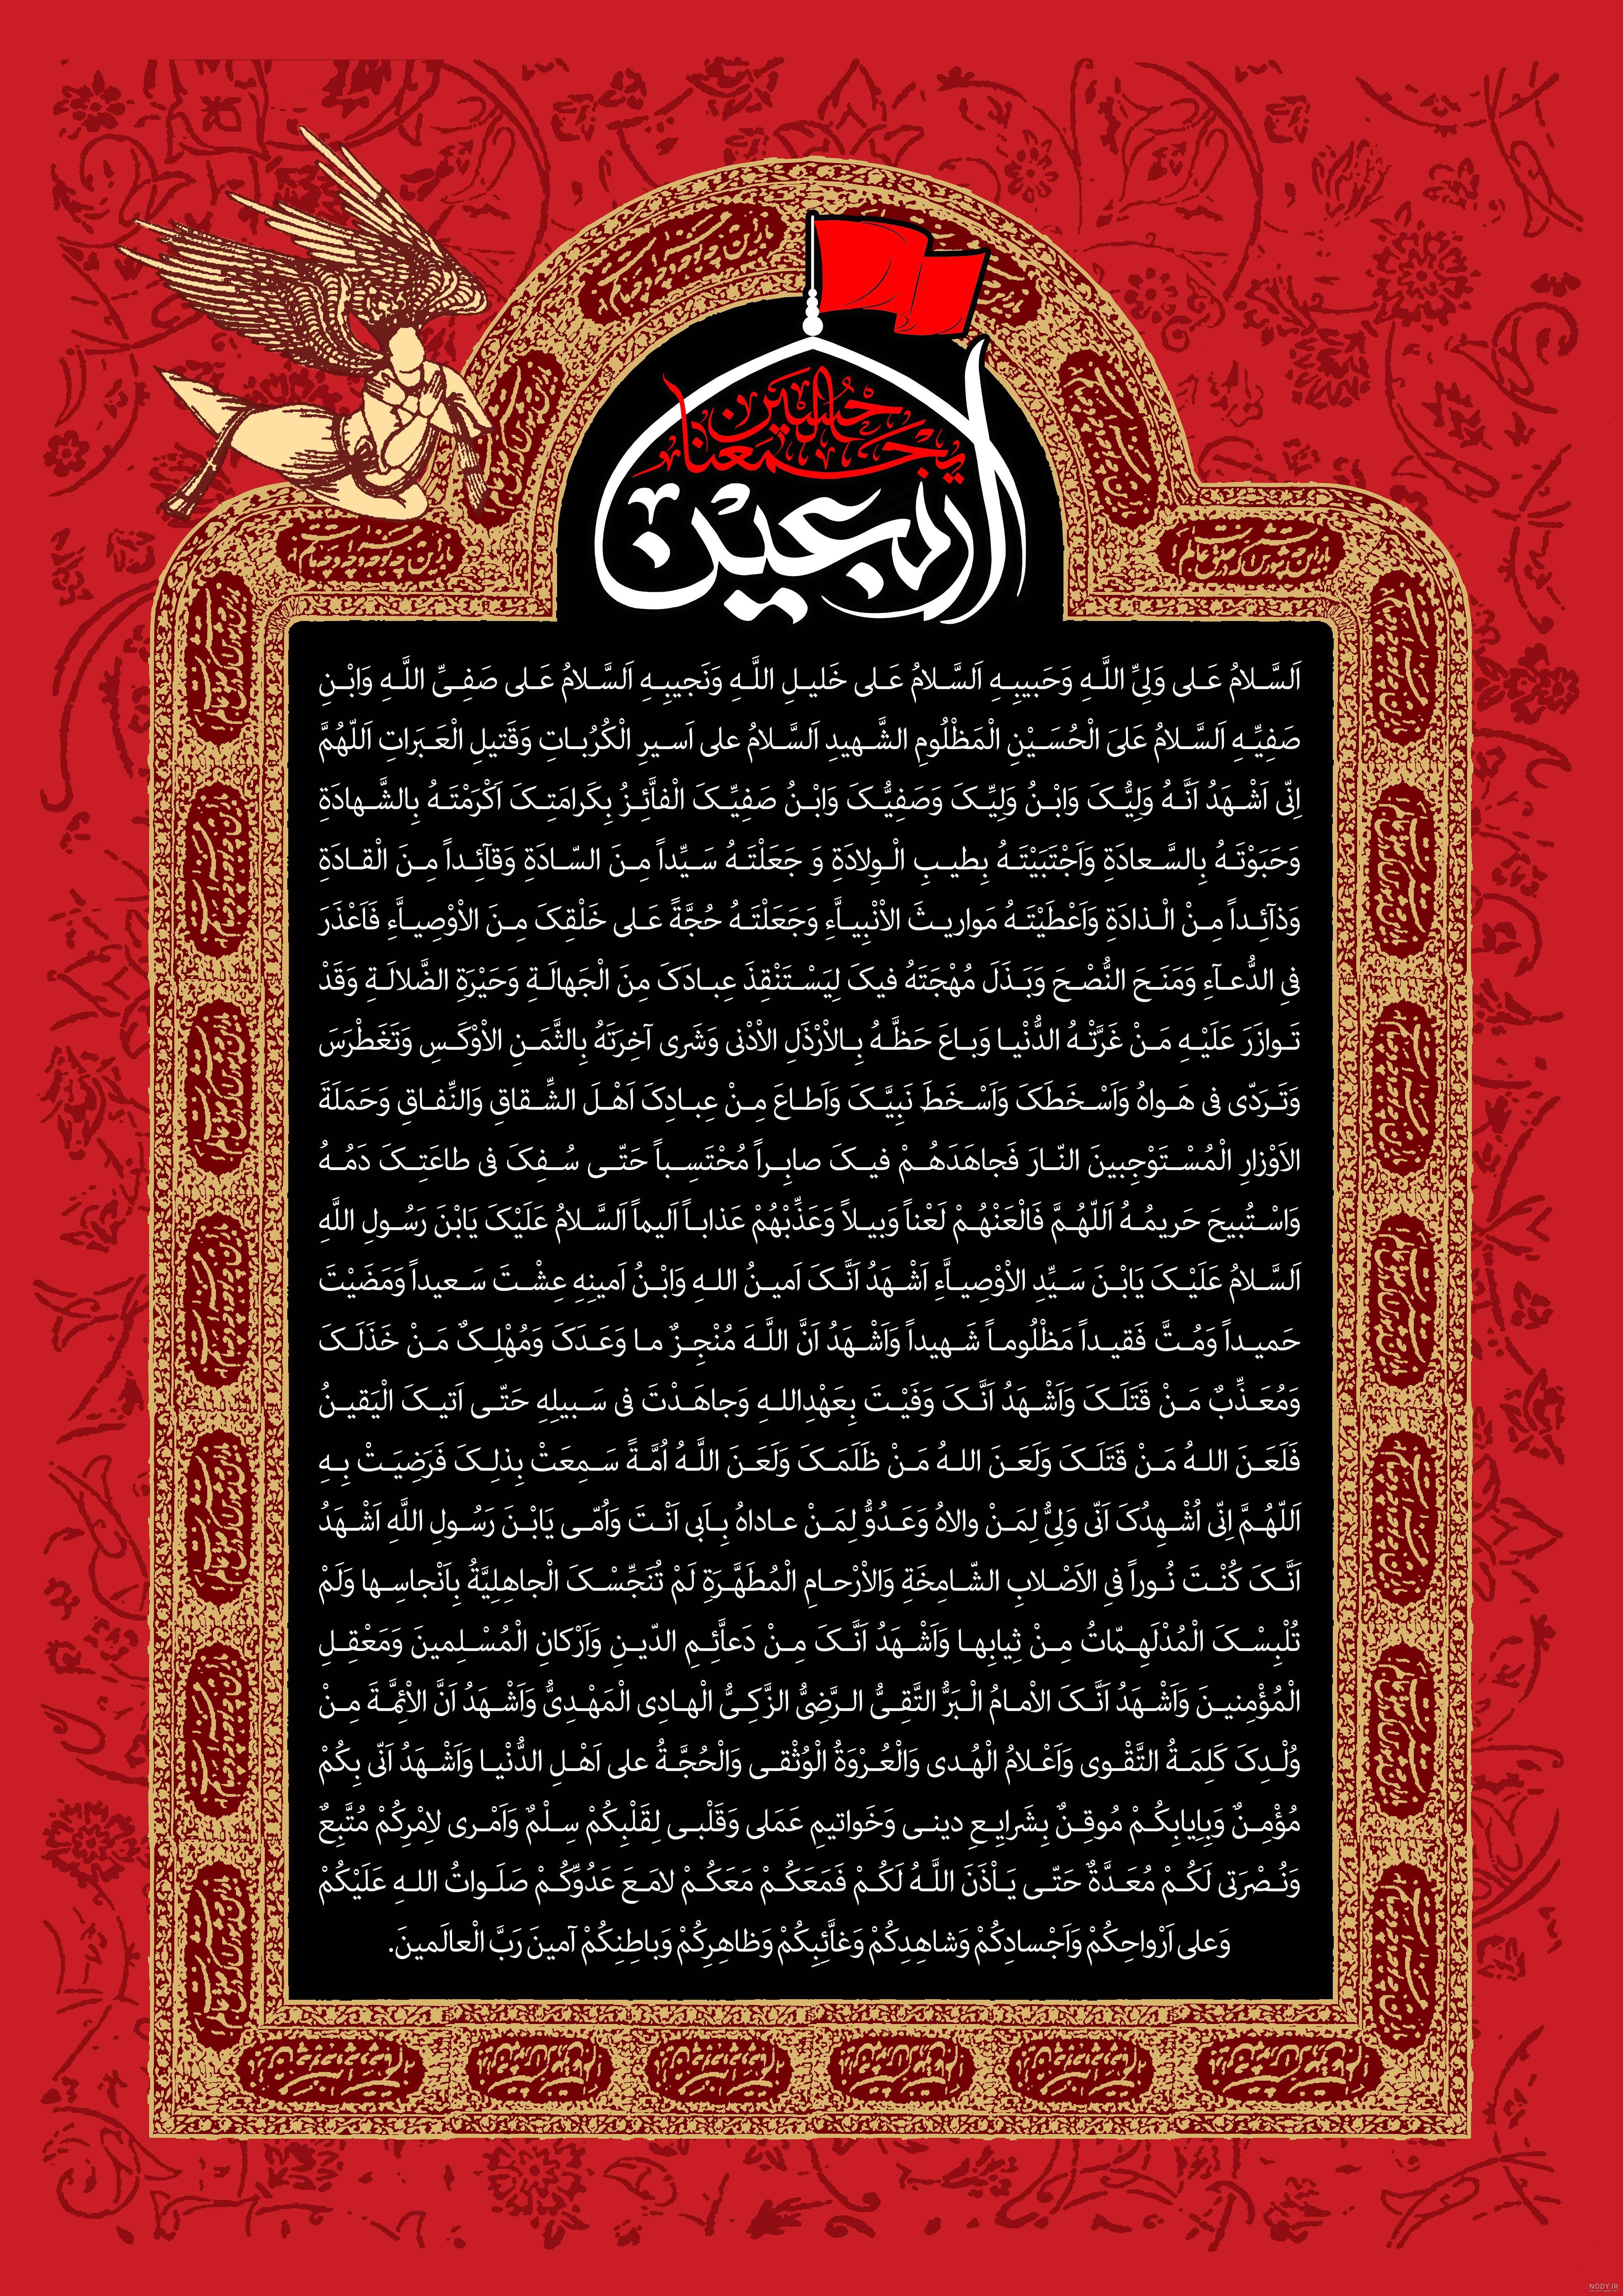 حسین
یجمعنا
اربعین
اَلسَّـلامُ عَـلی وَلِیِّ اللَّـهِ وَحَبیبِـهِ اَلسَّـلامُ عَـلی خَلیـلِ اللَّـهِ وَنَجیبِـهِ اَلسَّـلامُ عَـلی صَفِـیِّ اللَّـهِ وَابْـنِ
صَفِیِّـهِ اَلسَّـلامُ عَلیَ الْحُسَـیْنِ الْمَظْلُومِ الشَّـهیدِ اَلسَّـلامُ علی اَسـیرِ الْکُرُبـاتِ وَقَتیلِ الْعَـبَراتِ اَللّهُمَّ
اِنّی اَشْـهَدُ اَنَّـهُ وَلِیُّـکَ وَابْـنُ وَلِیِّـکَ وَصَفِیُّـکَ وَابْـنُ صَفِیِّـکَ الْفاَّئِـزُ بِکَرامَتِـکَ اَکْرَمْتَـهُ بِالشَّـهادَةِ
وَحَبَوْتَـهُ بِالسَّـعادَةِ وَاَجْتَبَیْتَـهُ بِطیـبِ الْـوِلادَةِ وَ جَعَلْتَـهُ سَـیِّداً مِـنَ السّـادَةِ وَقآئِـداً مِـنَ الْقـادَةِ
وَذآئِـداً مِـنْ الْـذادَةِ وَاَعْطَیْتَـهُ مَواریـثَ الاَْنْبِیـاَّءِ وَجَعَلْتَـهُ حُجَّةً عَـلی خَلْقِکَ مِـنَ الاَْوْصِیـاَّءِ فَاَعْذَرَ
فیِ الدُّعـآءِ وَمَنَـحَ النُّصْـحَ وَبَـذَلَ مُهْجَتَهُ فیکَ لِیَسْـتَنْقِذَ عِبـادَکَ مِنَ الْجَهالَـةِ وَحَیْرَةِ الضَّلالَـةِ وَقَدْ
تَـوازَرَ عَلَیْـهِ مَـنْ غَرَّتْـهُ الدُّنْیـا وَبـاعَ حَظَّـهُ بِـالاَْرْذَلِ الاَْدْنی وَشَری آخِرَتَهُ بِالثَّمَـنِ الاَْوْکَـسِ وَتَغَطْرَسَ
وَتَـرَدّی فی هَـواهُ وَاَسْـخَطَکَ وَاَسْـخَطَ نَبِیَّـکَ وَاَطـاعَ مِـنْ عِبـادِکَ اَهْـلَ الشِّـقاقِ وَالنِّفـاقِ وَحَمَلَةَ
الاَوْزارِ الْمُسْـتَوْجِبینَ النّـارَ فَجاهَدَهُـمْ فیـکَ صابِـراً مُحْتَسِـباً حَتّـی سُـفِکَ فی طاعَتِـکَ دَمُـهُ
وَاسْـتُبیحَ حَریمُـهُ اَللّهُـمَّ فَالْعَنْهُـمْ لَعْناً وَبیـلاً وَعَذِّبْهُمْ عَذابـاً اَلیماً اَلسَّـلامُ عَلَیْکَ یَابْنَ رَسُـولِ اللَّهِ
اَلسَّـلامُ عَلَیْـکَ یَابْـنَ سَـیِّدِ الاَْوْصِیـاَّءِ اَشْـهَدُ اَنَّـکَ اَمیـنُ اللـهِ وَابْـنُ اَمینِهِ عِشْـتَ سَـعیداً وَمَضَیْتَ
حَمیـداً وَمُـتَّ فَقیـداً مَظْلُومـاً شَـهیداً وَاَشْـهَدُ اَنَّ اللَّـهَ مُنْجِـزٌ مـا وَعَـدَکَ وَمُهْلِـکٌ مَـنْ خَذَلَـکَ
وَمُعَـذِّبٌ مَـنْ قَتَلَـکَ وَاَشْـهَدُ اَنَّـکَ وَفَیْـتَ بِعَهْدِاللـهِ وَجاهَـدْتَ فی سَـبیلِهِ حَتّـی اَتیـکَ الْیَقیـنُ
فَلَعَـنَ اللـهُ مَـنْ قَتَلَـکَ وَلَعَـنَ اللـهُ مَـنْ ظَلَمَـکَ وَلَعَـنَ اللَّـهُ اُمَّـةً سَـمِعَتْ بِذلِـکَ فَرَضِیَـتْ بِـهِ
اَللّهُـمَّ اِنّی اُشْـهِدُکَ اَنّی وَلِیُّ لِمَـنْ والاهُ وَعَـدُوُّ لِمَـنْ عـاداهُ بِـاَبی اَنْـتَ وَاُمّـی یَابْـنَ رَسُـولِ اللَّهِ اَشْـهَدُ
اَنَّـکَ کُنْـتَ نُـوراً فیِ الاَصْـلابِ الشّـامِخَةِ وَالاَْرْحـامِ الْمُطَهَّـرَةِ لَمْ تُنَجِّسْـکَ الْجاهِلِیَّةُ بِاَنْجاسِـها وَلَمْ
تُلْبِسْـکَ الْمُدْلَهِـمّاتُ مِـنْ ثِیابِهـا وَاَشْـهَدُ اَنَّـکَ مِـنْ دَعاَّئِـمِ الدّیـنِ وَاَرْکانِ الْمُسْـلِمینَ وَمَعْقِـلِ
الْمُؤْمِنیـنَ وَاَشْـهَدُ اَنَّـکَ الاْمـامُ الْـبَرُّ التَّقِـیُّ الـرَّضِیُّ الزَّکِـیُّ الْهـادِی الْمَهْـدِیُّ وَاَشْـهَدُ اَنَّ الاَْئِمَّـةَ مِـنْ
وُلْـدِکَ کَلِمَـةُ التَّقْـوی وَاَعْـلامُ الْهُـدی وَالْعُـرْوَةُ الْوُثْقـی وَالْحُجَّـةُ علی اَهْـلِ الدُّنْیـا وَاَشْـهَدُ اَنّی بِکُمْ
مُؤْمِـنٌ وَبِاِیابِکُـمْ مُوقِـنٌ بِشَرایِـعِ دینـی وَخَواتیمِ عَمَلی وَقَلْبـی لِقَلْبِکُمْ سِـلْمٌ وَاَمْـری لاِمْرِکُمْ مُتَّبِعٌ
وَنُـصْرَتی لَکُـمْ مُعَـدَّةٌ حَتّـی یَـاْذَنَ اللَّـهُ لَکُـمْ فَمَعَکُـمْ مَعَکُـمْ لامَـعَ عَدُوِّکُـمْ صَلَـواتُ اللـهِ عَلَیْکُمْ
وَعلی اَرْواحِکُمْ وَاَجْسادِکُمْ وَشاهِدِکُمْ وَغاَّئِبِکُمْ وَظاهِرِکُمْ وَباطِنِکُمْ آمینَ رَبَّ الْعالَمینَ.
NODY.IR